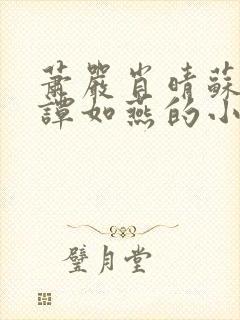 蕭嚴肖晴蘇
譚如燕的小
璧月堂